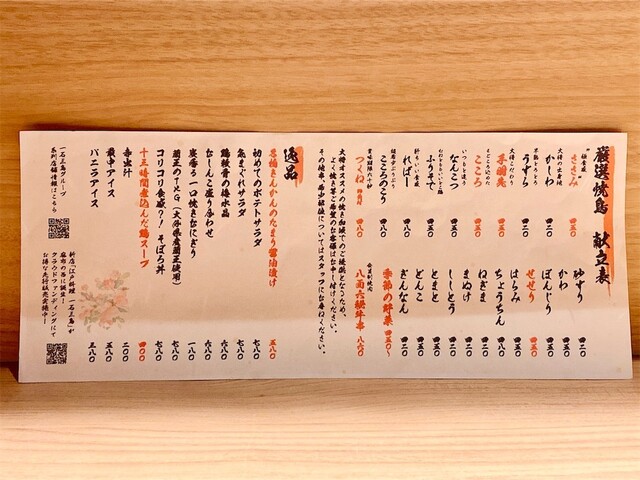 厳選焼鳥 献立表
砂ずり 四二〇
かわ 四五〇
ぼんじり 四五〇
せせり 四五〇
はらみ 四五〇
ちょうちん 四八〇
ねぎま 四二〇
まぬけ 四二〇
ししとう
とまと 四五〇
どんこ 四五〇
ぎんなん 四二〇
季節の野菜 四五〇~
八面六臂牛串 八六〇
ささみ 四五〇
かわ 四二〇
うずら 四二〇
手羽先 四五〇
こころ 四五〇
なんこつ 四五〇
ふりそで
ればー 四五〇
こころのこり 四八〇
つくね 四八〇
大将オススメの焼き加減でのご提供となるため、
よく焼き等ご希望のお客様はお申し付けください。
その他、希少部位についてはスタッフにお尋ねください。
逸品
きんかんのたまり醤油漬け 五八〇
初めてのポテトサラダ 七八〇
気まぐれサラダ 七八〇
鶏軟骨の梅水晶 六八〇
むしんこ盛り合わせ 六八〇
一口焼きおにぎり 一八〇
蘭王のTKG(大分県産蘭王使用) 六八〇
コリコリ食感?!そぼろ丼 七八〇
十三時間煮込んだ鶏スープ 四〇〇
赤出汁 二〇〇
最中アイス 五八〇
バニラアイス 三八〇
一石三鳥グループ
系列店舗情報はこちら
新店「江戸料理 一石三鳥」が
麻布の各に誕生!
クラウドファンディングにて
お得な先行販売実施中!